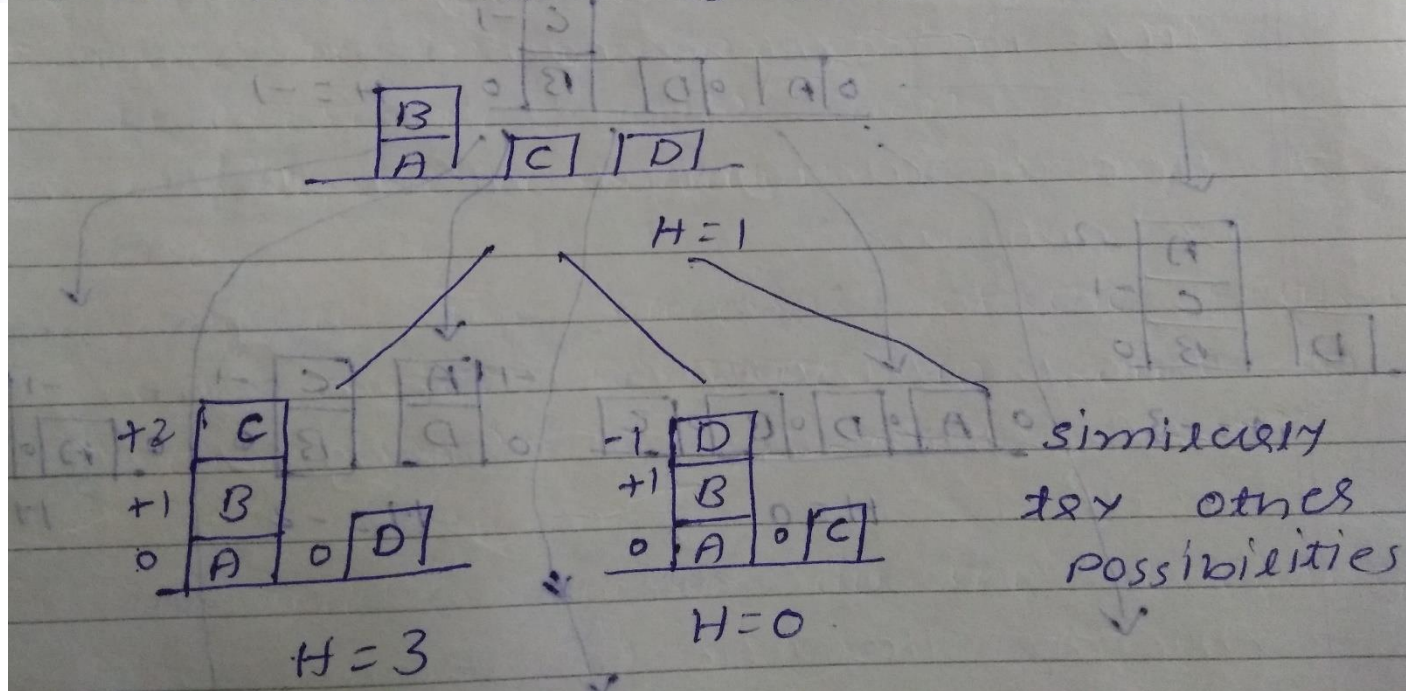 B
A C D
H = 1
+2 C
+1 B
0 A 0 D
H = 3
-1 D
+1 B
0 A 0 C
H = 0
similarly
try other
possibilities